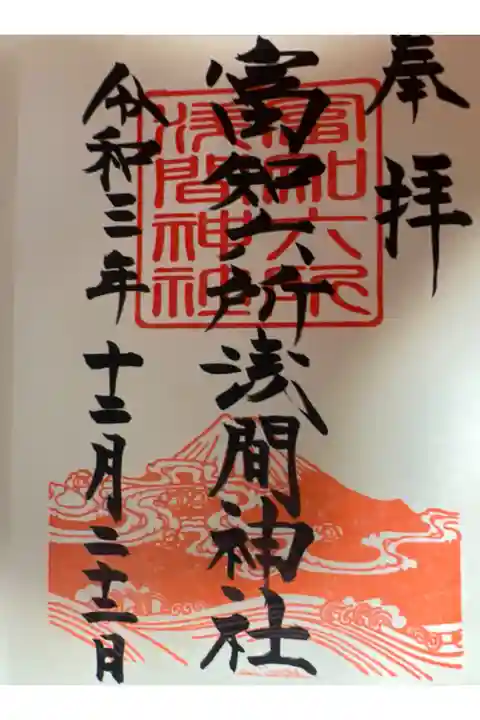 奉拝
富知六所浅間神社
富知六所
浅間神社
令和三年十二月二十二日